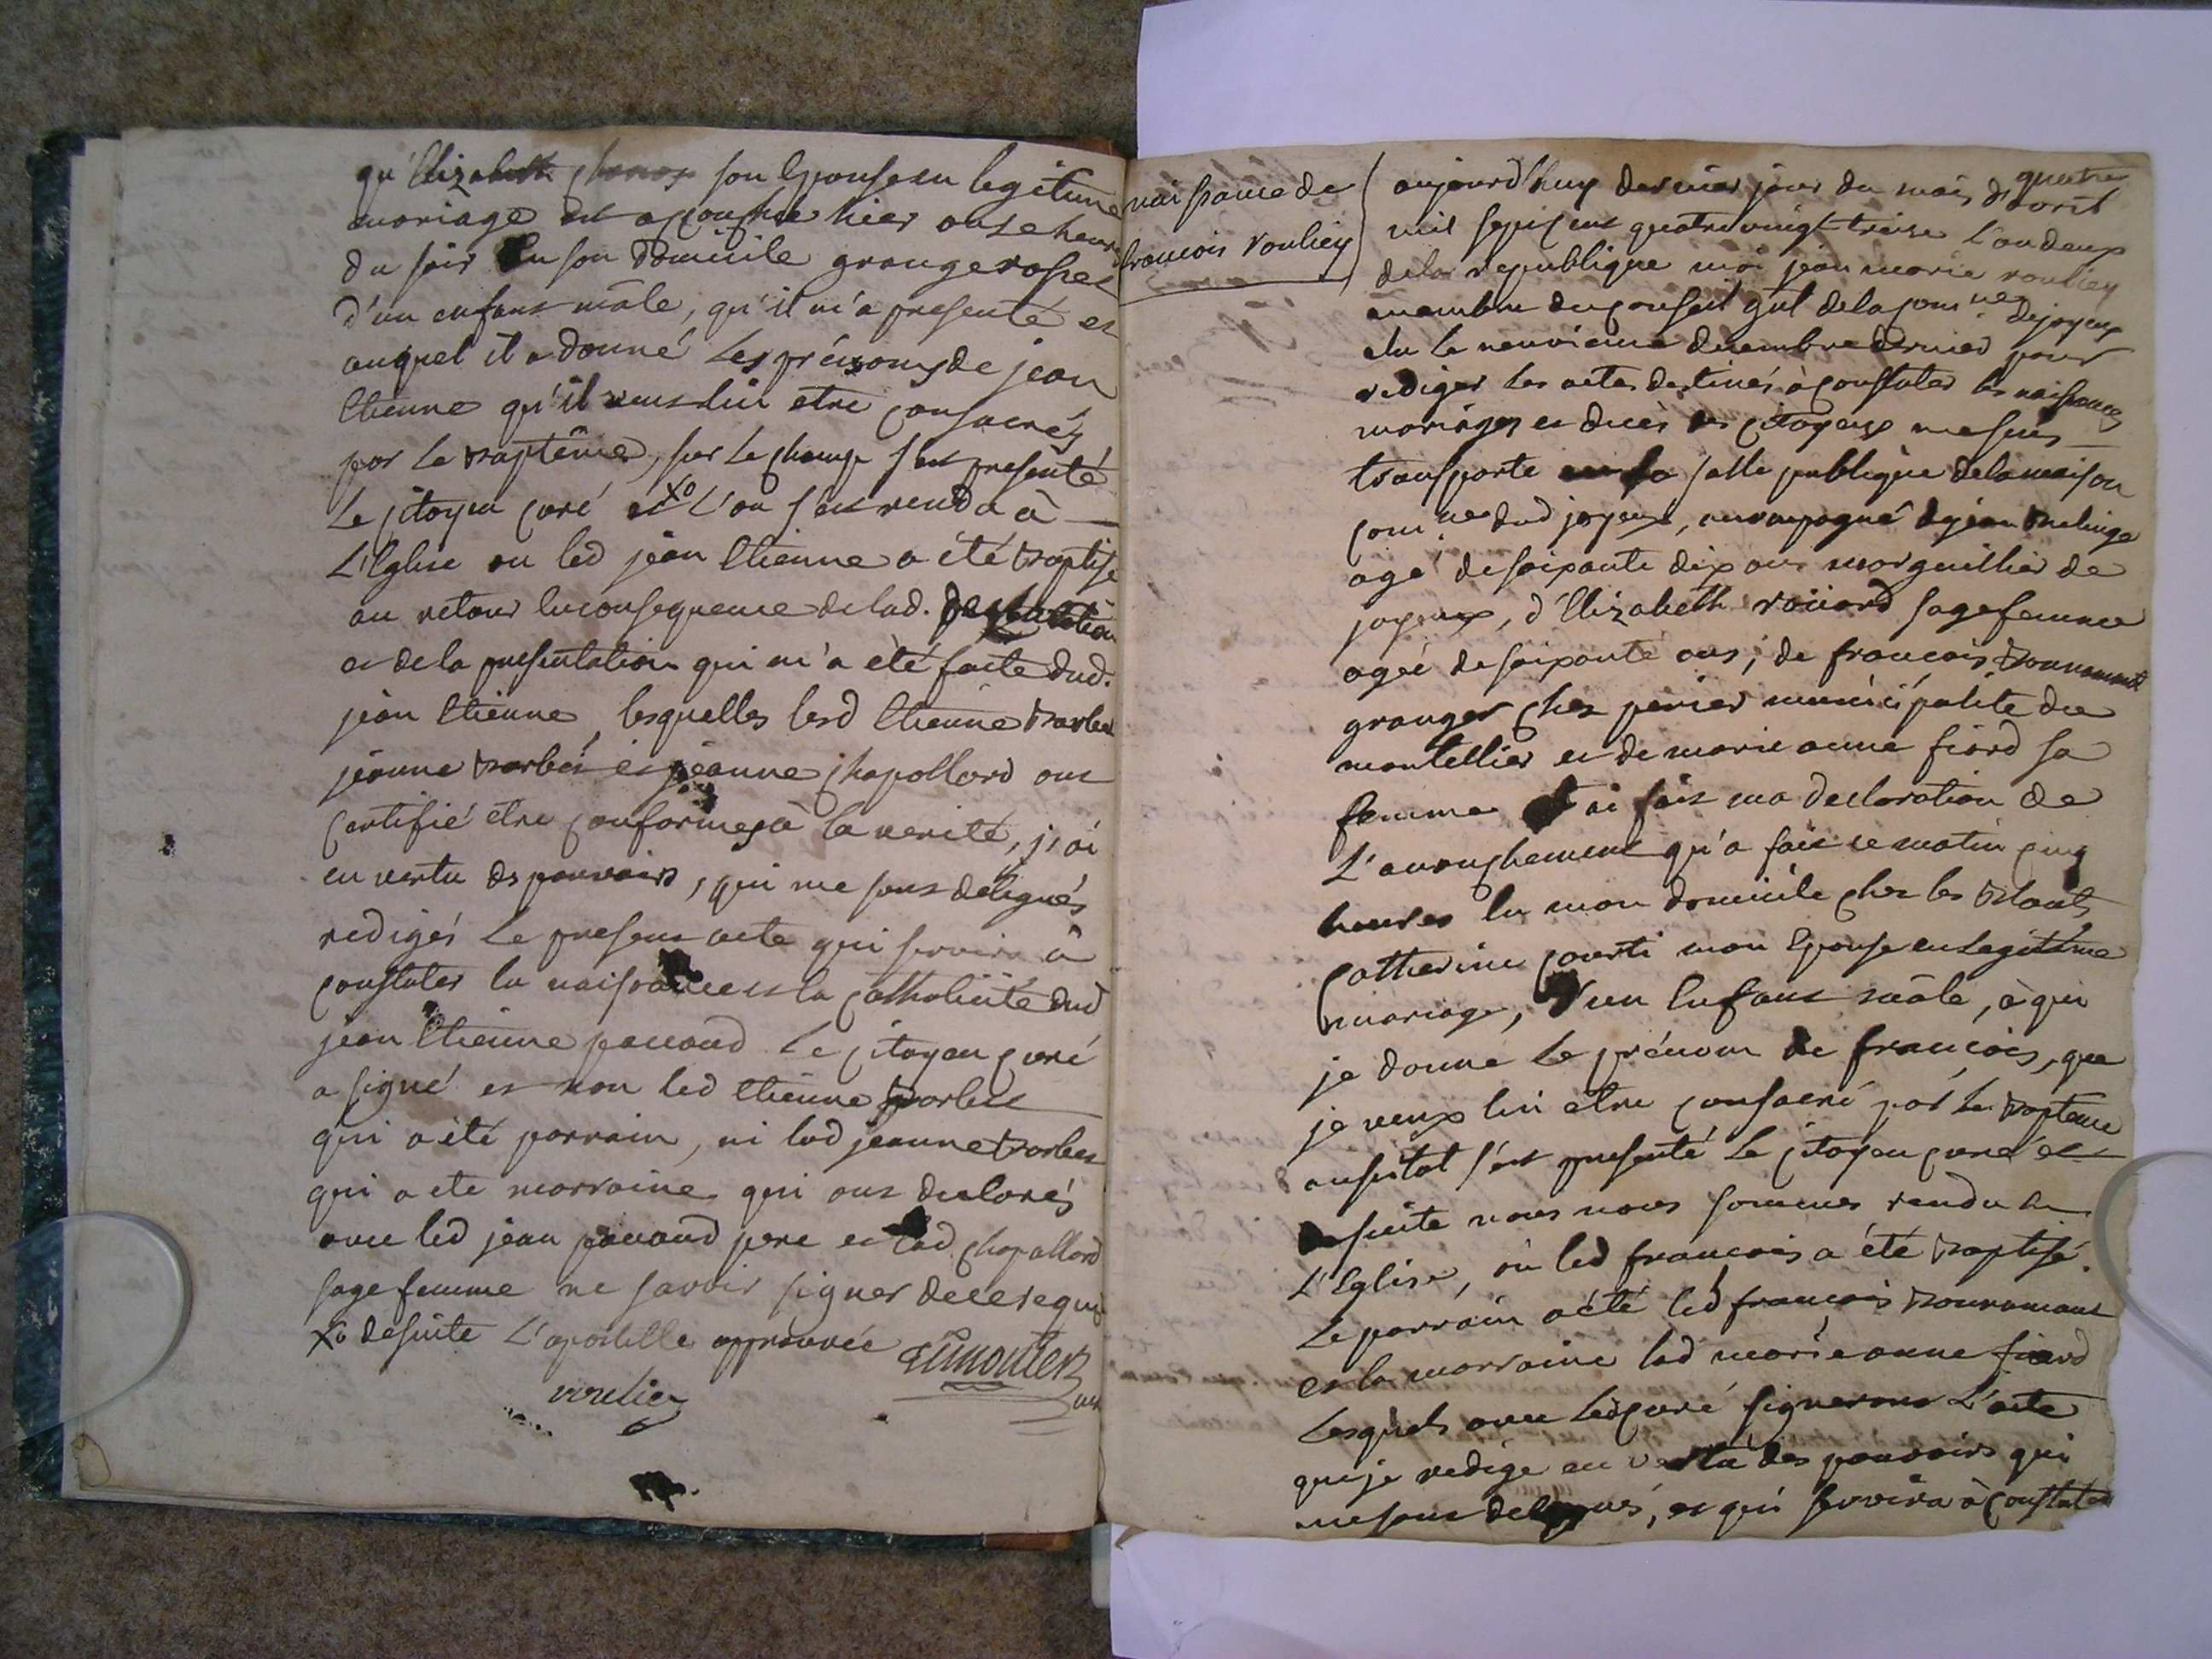 qu'Elizabeth son Epouse en legitime
mariage est accouchée hier onze heures
du soir En son domicile grange
d'un enfant mâle, qu'il m'a presenté et
auquel il a donné Les prénoms de jean
Etienne qu'il veut lui etre consacrés
par le Baptême, sur le champ s'est presenté
Le citoyen curé et Xo L'on s'est rendu à
L'Eglise ou led jean Etienne a été Baptisé
au retour En consequence de lad. declaration
et de la presentation qui m'a été faite dud.
jean Etienne, lesquelles lesd Etienne Barbet
jeanne Barbet et jeanne chapollard ont
certifié etre conformes à la verité, j'ai
en vertu des pouvoirs, qui me sont delegués
redigés Le present acte qui servira à
constater la naissance et la catholicité dud
jean Etienne pacoud Le citoyen curé
a signé et non led Etienne Barbet
qui a été parrain, ni lad jeanne Barbet
qui a ete marraine qui ont declarés
avec led jean pacoud pere et lad chapollard
sage femme ne savoir signer de ce requis
Xo de suite L'apostille approuvée
voulier
naissance de
francois voulier
aujourd'huy dernier jour du mois d'avril
mil sept cent quatre vingt treize L'an deux
de la republique moi jean marie voulier
membre du conseil gnl de la comune de joyeux
elu le neuvieme decembre dernier pour
rediger les actes destinés à constater les naissances
mariages et decès des citoyens me suis
transporté en la salle publique de la maison
comune dud joyeux, accompagné de jean
agé de soixante dix ans marguillier de
joyeux, d'Elizabeth sage femme
agée de soixante ans; de francois Bonnamant
granger chez perier municipalité du
montellier et de marie anne fiard sa
femme et ai fait ma declaration de
L'accouchement qu'a fait ce matin cinq
heures En mon domicile chez les
catherine courti mon Epouse en legitime
mariage, d'un Enfant mâle, à qui
je donne Le prénom de francois, que
je veux lui etre consacré par le Bapteme
aussitot s'est presenté Le citoyen curé et
de suite nous nous sommes rendu En
L'Eglise, où led francois a été Baptisé.
Le parrain a été led francois Bonnamant
et la marraine lad marie anne fiard
Lesquels avec led curé signeront L'acte
que je redige en vertu des pouvoirs qui
me sont delegués, et qui servira à constater